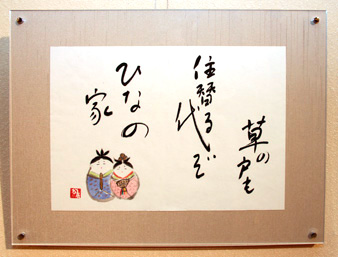 草の戸も
住替る代ぞ
ひなの
家